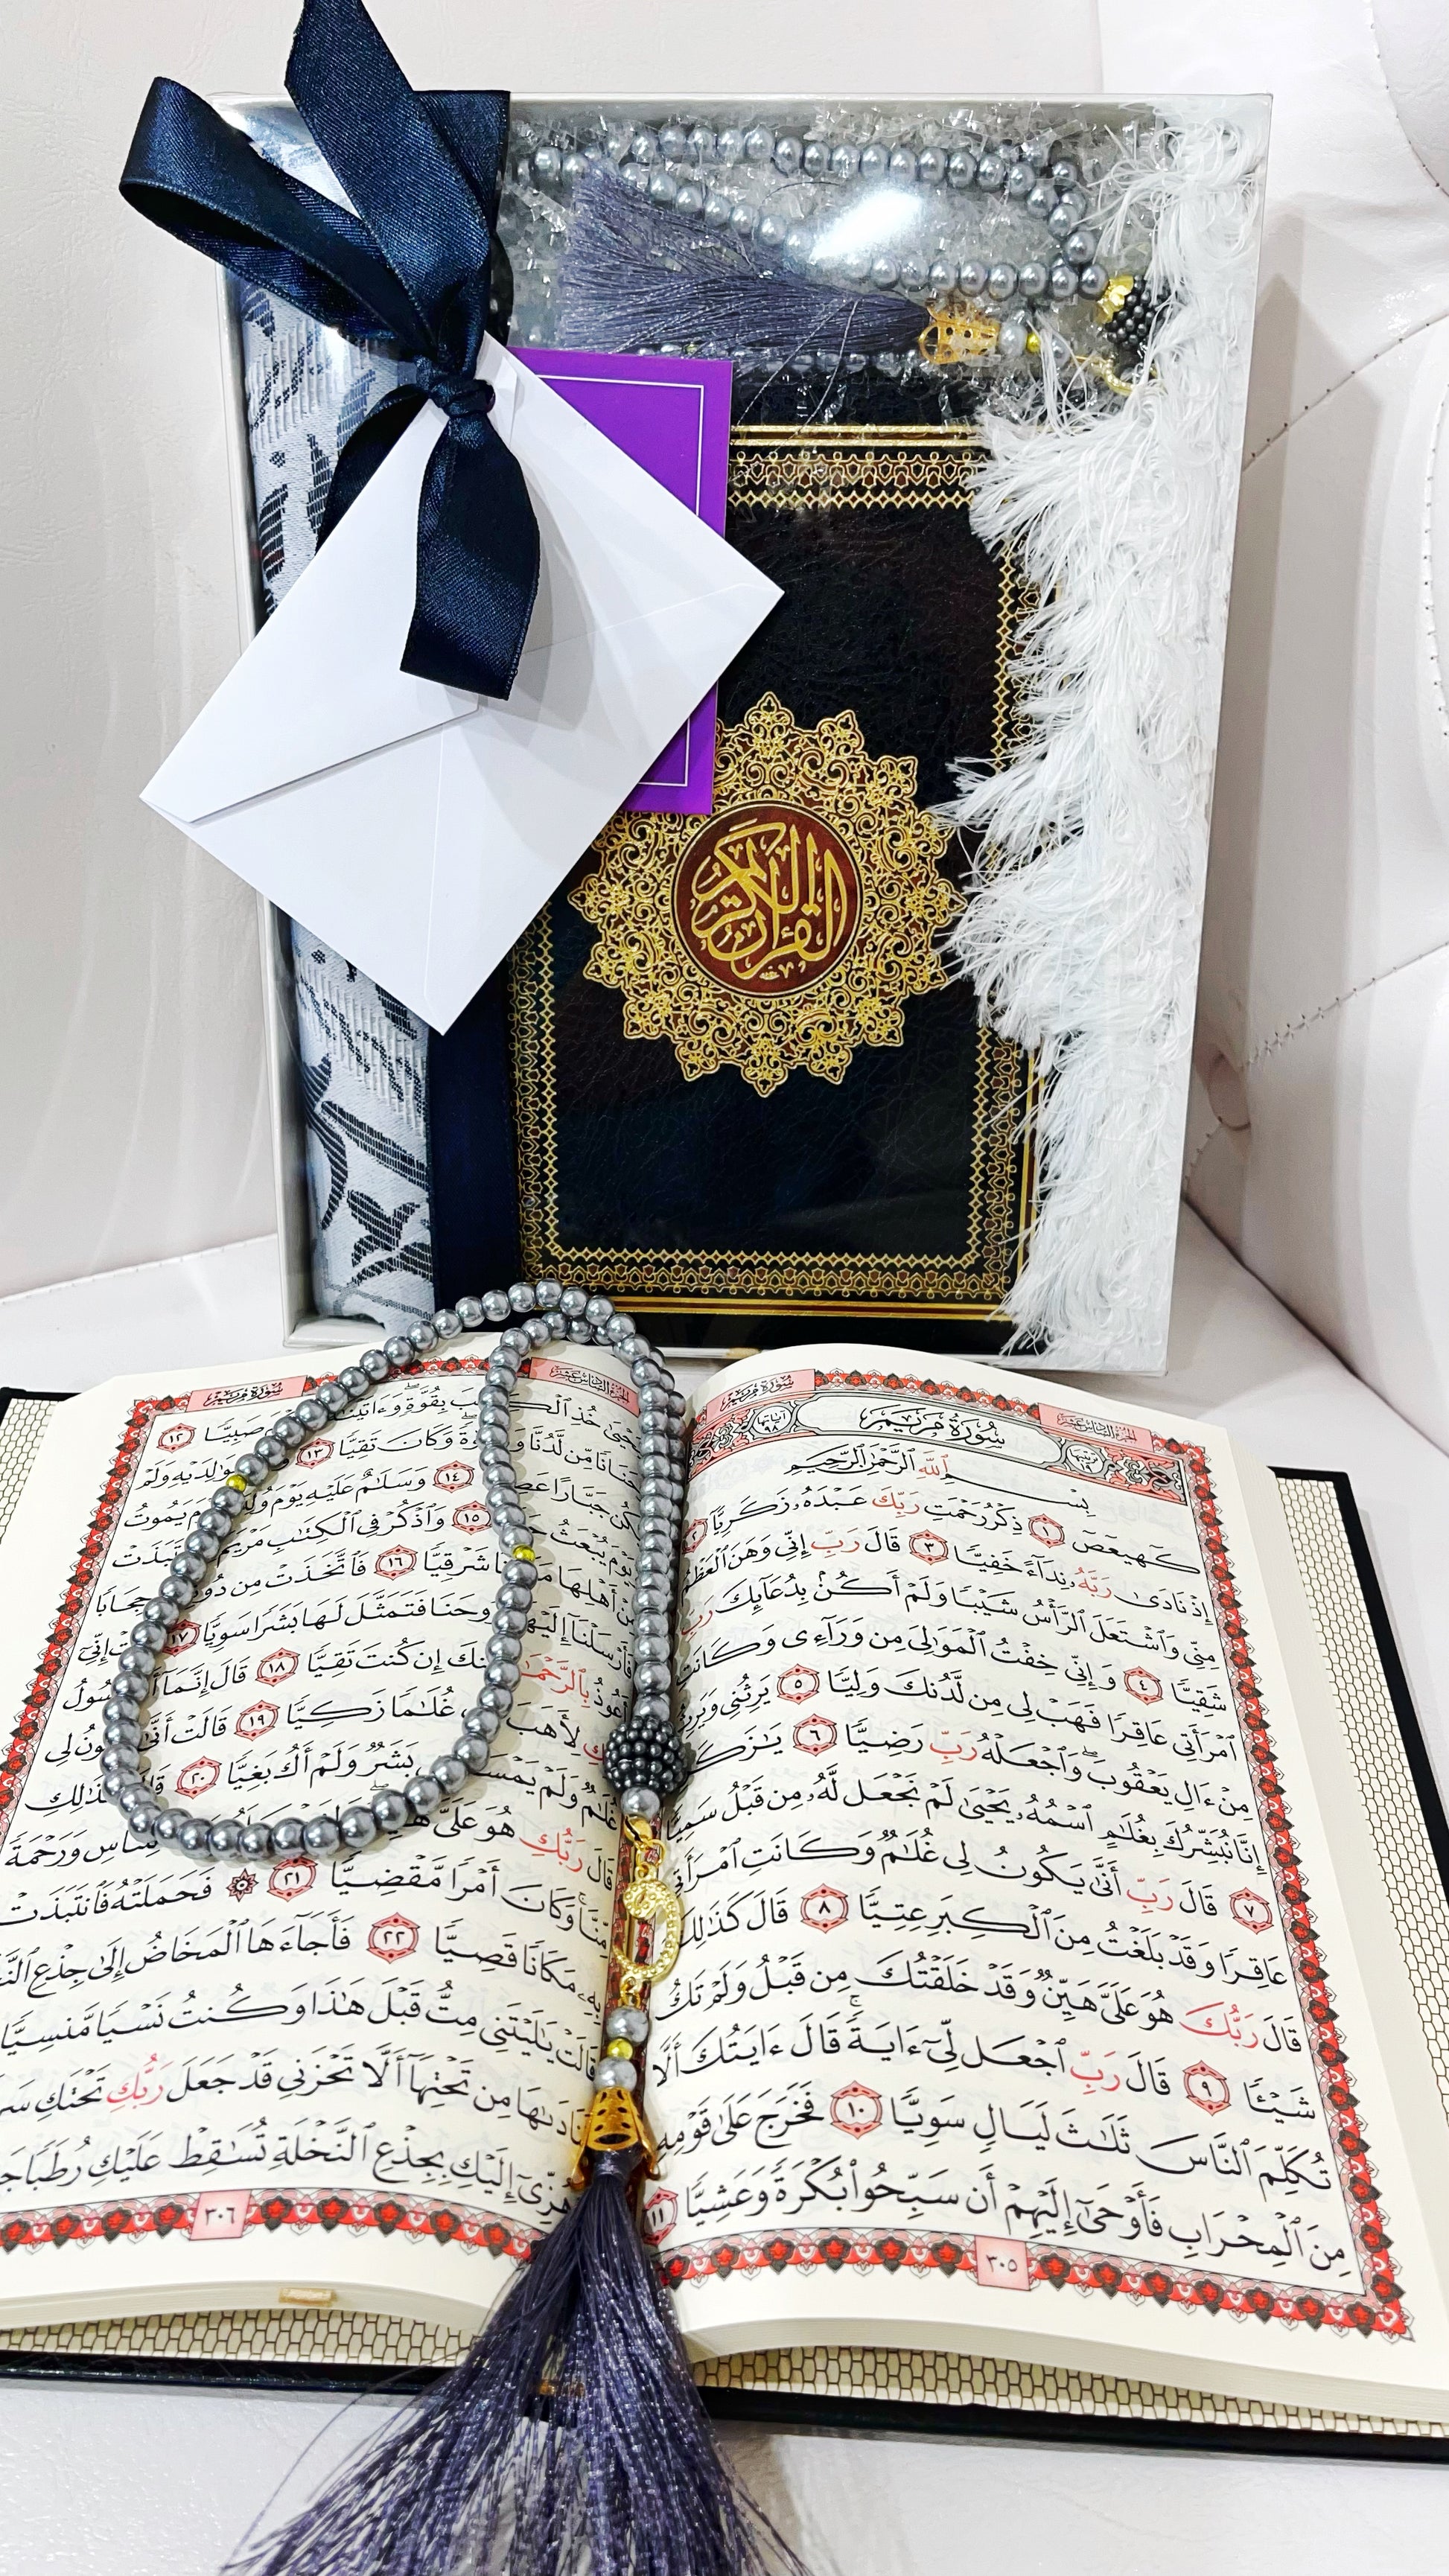 القرآن الكريم
سُورَةُ مَرۡيَمَ
الجزء السادس عشر
سُورَةُ مَرۡيَمَ
آياتها ٩٨
بِسۡمِ ٱللَّهِ ٱلرَّحۡمَٰنِ ٱلرَّحِيمِ
كٓهيعٓصٓ ١ ذِكۡرُ رَحۡمَتِ رَبِّكَ عَبۡدَهُۥ زَكَرِيَّآ ٢
إِذۡ نَادَىٰ رَبَّهُۥ نِدَآءً خَفِيّٗا ٣ قَالَ رَبِّ إِنِّي وَهَنَ ٱلۡعَظۡمُ
مِنِّي وَٱشۡتَعَلَ ٱلرَّأۡسُ شَيۡبٗا وَلَمۡ أَكُنۢ بِدُعَآئِكَ رَبِّ
شَقِيّٗا ٤ وَإِنِّي خِفۡتُ ٱلۡمَوَٰلِيَ مِن وَرَآءِي وَكَانَتِ
ٱمۡرَأَتِي عَاقِرٗا فَهَبۡ لِي مِن لَّدُنكَ وَلِيّٗا ٥ يَرِثُنِي وَيَرِثُ
مِنۡ ءَالِ يَعۡقُوبَۖ وَٱجۡعَلۡهُ رَبِّ رَضِيّٗا ٦ يَٰزَكَ
إِنَّا نُبَشِّرُكَ بِغُلَٰمٍ ٱسۡمُهُۥ يَحۡيَىٰ لَمۡ نَجۡعَل لَّهُۥ مِن قَبۡلُ سَمِيّٗا
٧ قَالَ رَبِّ أَنَّىٰ يَكُونُ لِي غُلَٰمٞ وَكَانَتِ ٱمۡرَأَتِي
عَاقِرٗا وَقَدۡ بَلَغۡتُ مِنَ ٱلۡكِبَرِ عِتِيّٗا ٨ قَالَ كَذَٰلِكَ
قَالَ رَبُّكَ هُوَ عَلَيَّ هَيِّنٞ وَقَدۡ خَلَقۡتُكَ مِن قَبۡلُ وَلَمۡ تَكُ
شَيۡـٔٗا ٩ قَالَ رَبِّ ٱجۡعَل لِّيٓ ءَايَةٗۚ قَالَ ءَايَتُكَ أَلَّا
تُكَلِّمَ ٱلنَّاسَ ثَلَٰثَ لَيَالٖ سَوِيّٗا ١٠ فَخَرَجَ عَلَىٰ قَوۡمِهِۦ
مِنَ ٱلۡمِحۡرَابِ فَأَوۡحَىٰٓ إِلَيۡهِمۡ أَن سَبِّحُواْ بُكۡرَةٗ وَعَشِيّٗا ١١
٣٠٥
الجزء السادس عشر
سُورَةُ مَرۡيَمَ
خُذِ بِقُوَّةٖۖ وَءَاتَيۡنَٰ صَبِيّٗا ١٢
وَحَنَانٗا مِّن لَّدُنَّا وَكَانَ تَقِيّٗا ١٣ بِوَٰلِدَيۡهِ وَلَمۡ
يَكُن جَبَّارًا عَصِ ١٤ وَسَلَٰمٌ عَلَيۡهِ يَوۡمَ وُلِدَ يَمُوتُ
وَيَوۡمَ يُبۡعَثُ ١٥ وَٱذۡكُرۡ فِي ٱلۡكِتَٰبِ مَرۡيَمَ ٱنتَبَذَتۡ
مِنۡ أَهۡلِهَا مَ شَرۡقِيّٗا ١٦ فَٱتَّخَذَتۡ مِن دُو حِجَابٗا
فَأَرۡسَلۡنَآ إِلَيۡهَ رُوحَنَا فَتَمَثَّلَ لَهَا بَشَرٗا سَوِيّٗا ١٧ إِنِّيٓ
أَعُوذُ بِٱلرَّحۡمَٰ نكَ إِن كُنتَ تَقِيّٗا ١٨ قَالَ إِنَّمَآ أَ رَسُولُ
لِأَهَبَ غُلَٰمٗا زَكِيّٗا ١٩ قَالَتۡ أَنَّىٰ يَكُونُ لِي
غُلَٰمٞ وَلَمۡ يَمۡسَ بَشَرٞ وَلَمۡ أَكُ بَغِيّٗا ٢٠ قَالَ كَذَٰلِكِ
قَالَ رَبُّكِ هُوَ عَلَيَّ هَ لِّلنَّاسِ وَرَحۡمَةٗ
مِّنَّاۚ وَكَانَ أَمۡرٗا مَّقۡضِيّٗا ٢١ فَحَمَلَتۡهُ فَٱنتَبَذَتۡ
بِهِۦ مَكَانٗا قَصِيّٗا ٢٢ فَأَجَآءَهَا ٱلۡمَخَاضُ إِلَىٰ جِذۡعِ ٱلنَّ
قَالَتۡ يَٰلَيۡتَنِي مِتُّ قَبۡلَ هَٰذَا وَكُنتُ نَسۡيٗا مَّنسِيّٗا
نَادَىٰهَا مِن تَحۡتِهَآ أَلَّا تَحۡزَنِي قَدۡ جَعَلَ رَبُّكِ تَحۡتَكِ سَرِ
هُزِّيٓ إِلَيۡكِ بِجِذۡعِ ٱلنَّخۡلَةِ تُسَٰقِطۡ عَلَيۡكِ رُطَبٗا جَ
٣٠٦